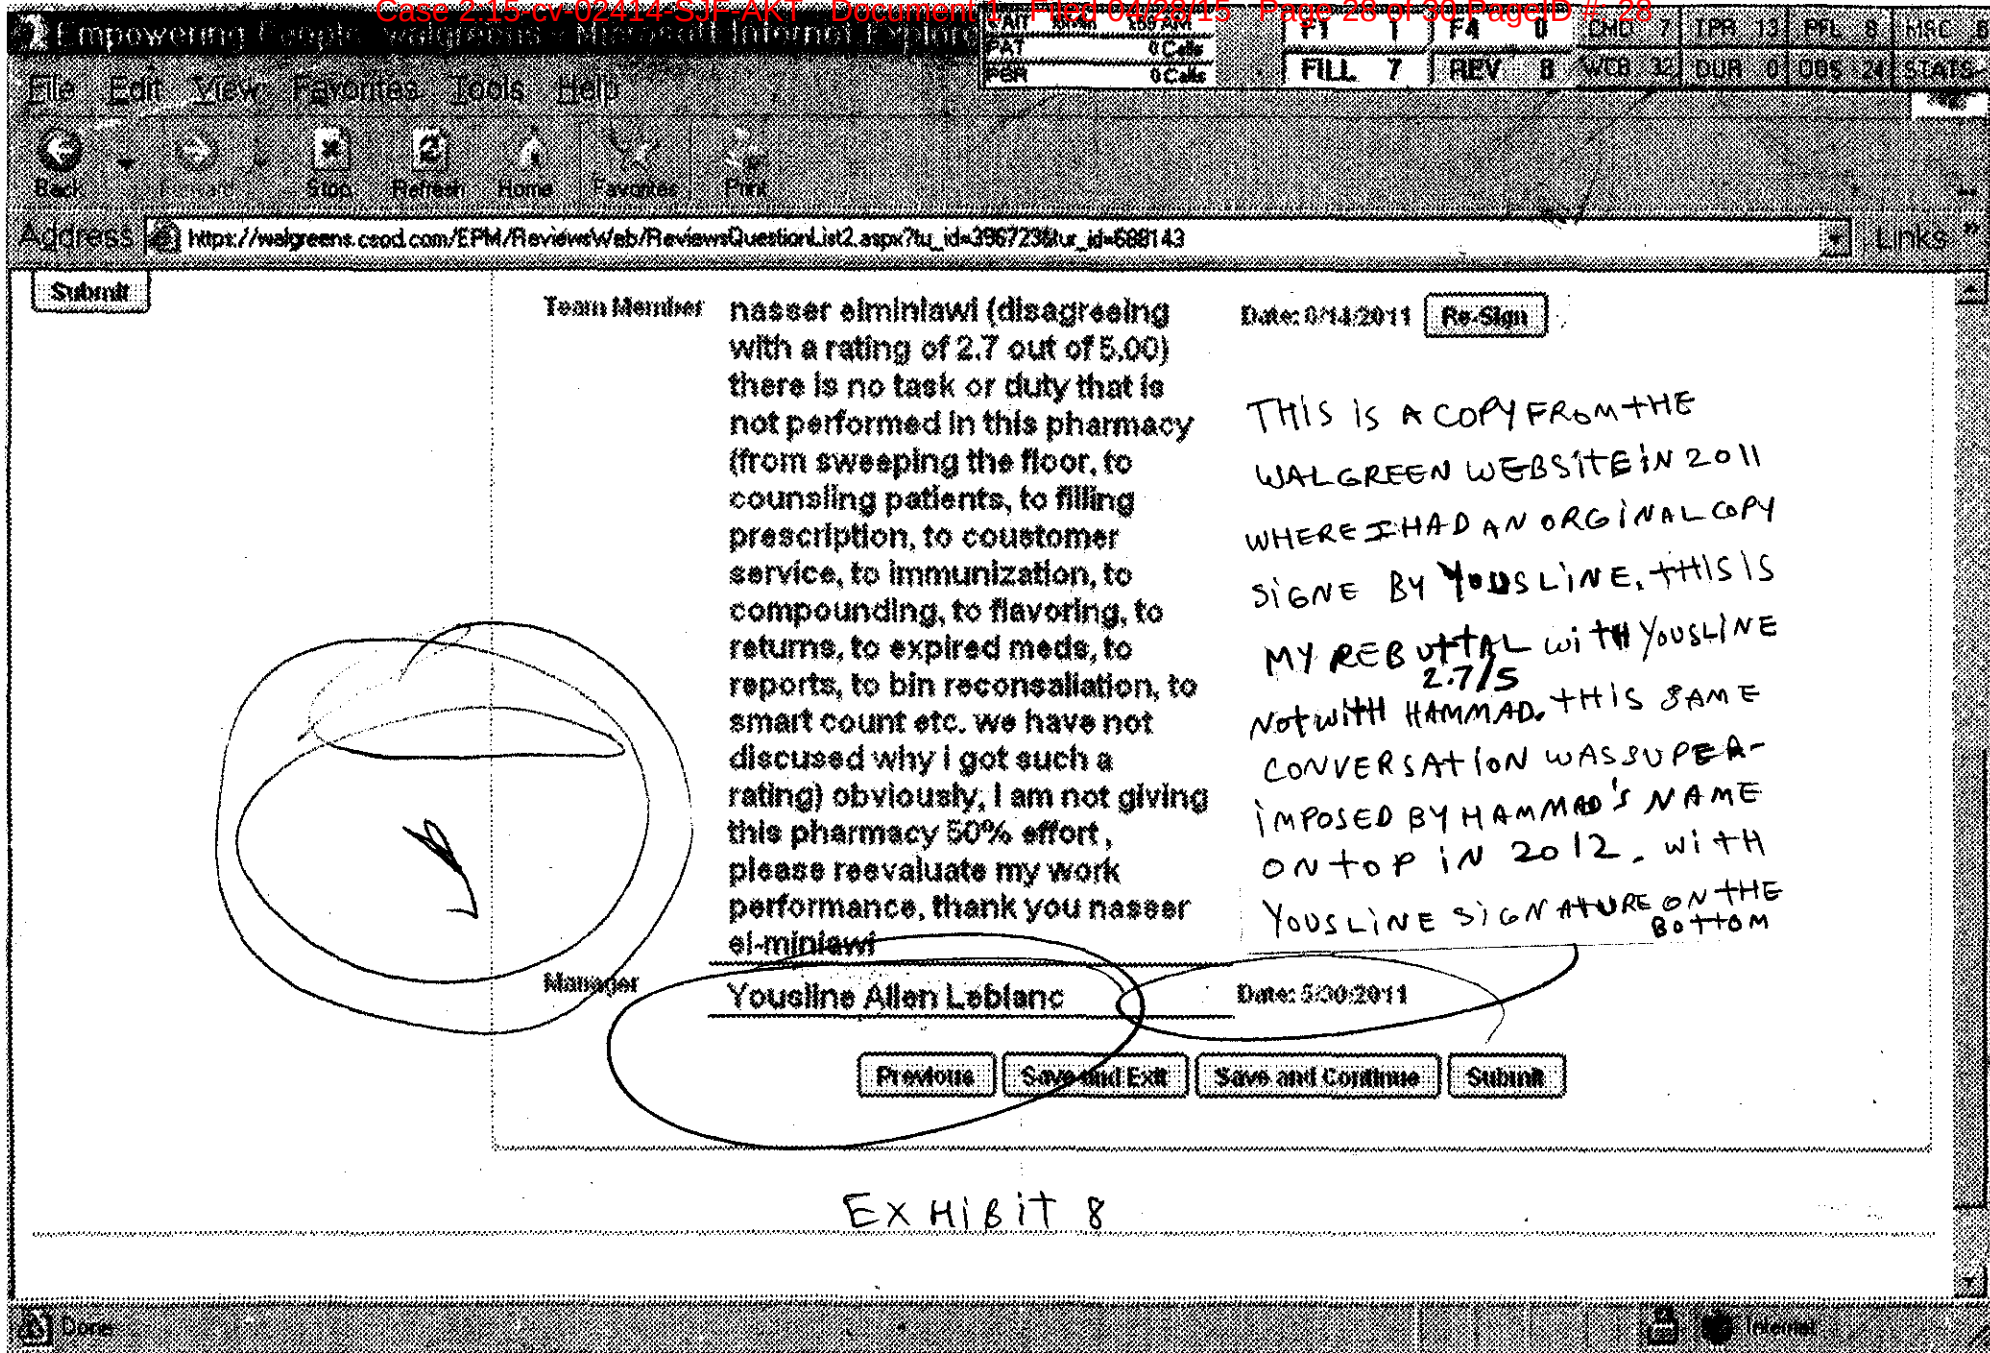 Case 2:15-cv-02414-SJF-AKT Document 1 Filed 04/28/15 Page 28 of 38 PageID #: 28
Empowering People walgreens - Microsoft Internet Explore
PAT 0 Calls
PBR 0 Calls
F1 1 F4 0 7 TPR 13 PFL 8 MAC 6
FILL 7 REV 8 WCB 32 DUR 0 OBS 24 STATS
File Edit View Favorites Tools Help
Back Forward Stop Refresh Home Favorites Print
Address https://walgreens.csod.com/EPM/ReviewsWeb/ReviewsQuestionList2.aspx?tu_id=396723&tur_id=688143 Links
Submit
Team Member
nasser elminiawi (disagreeing
with a rating of 2.7 out of 5.00)
there is no task or duty that is
not performed in this pharmacy
(from sweeping the floor, to
counsling patients, to filling
prescription, to coustomer
service, to immunization, to
compounding, to flavoring, to
returns, to expired meds, to
reports, to bin reconsaliation, to
smart count etc. we have not
discused why i got such a
rating) obviously, I am not giving
this pharmacy 50% effort ,
please reevaluate my work
performance, thank you nasser
el-miniawi
Date: 6/14/2011 Re-Sign
THIS IS A COPY FROM THE
WALGREEN WEBSITE IN 2011
WHERE I HAD AN ORGINAL COPY
SIGNE BY YOUSLINE. THIS IS
MY REBUTTAL WITH YOUSLINE
2.7/5
NOT WITH HAMMAD. THIS SAME
CONVERSATION WAS SUPER-
IMPOSED BY HAMMAD'S NAME
ON TOP IN 2012. WITH
YOUSLINE SIGNATURE ON THE
BOTTOM
Manager Yousline Allen Leblanc Date: 5/30/2011
Previous Save and Exit Save and Continue Submit
EXHIBIT 8
Done Internet